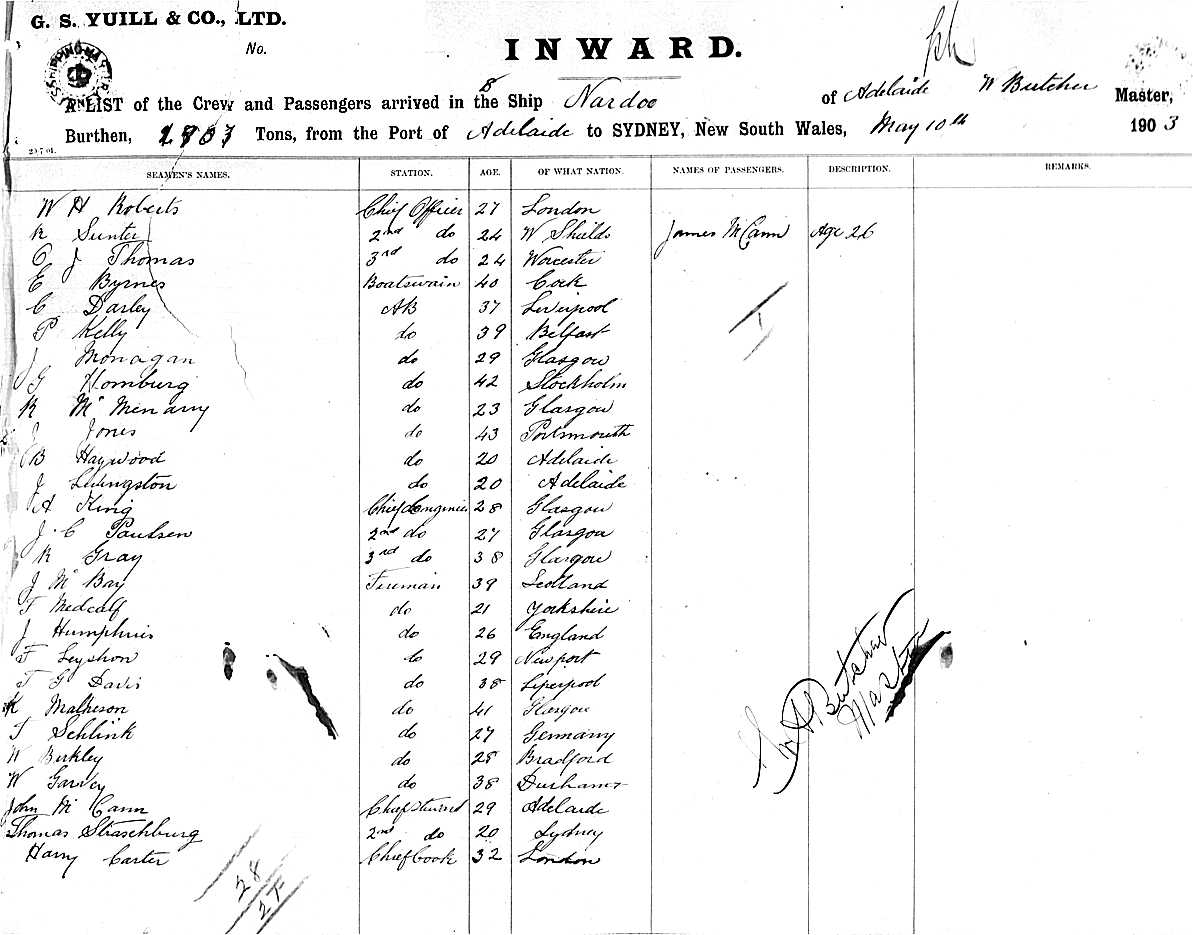 G. S. YUILL & CO., LTD.
No.
INWARD.
A LIST of the Crew and Passengers arrived in the SS Ship Nardoo of Adelaide W Butcher Master,
Burthen, 2903 Tons, from the Port of Adelaide to SYDNEY, New South Wales, May 10th 1903
SEAMEN'S NAMES. STATION. AGE. OF WHAT NATION. NAMES OF PASSENGERS. DESCRIPTION. REMARKS.
W H Roberts Chief Officer 27 London
R Sunter 2nd do 24 W Shields James McCann Age 26
C J Thomas 3rd do 24 Worcester
E Byrnes Boatswain 40 Cork
C Darley AB 37 Liverpool
P Kelly do 39 Belfast
J Monagan do 29 Glasgow
G Homburg do 42 Stockholm
R McMenarry do 23 Glasgow
J Jones do 43 Portsmouth
B Haywood do 20 Adelaide
J Livingston do 20 Adelaide
A King Chief Enginier 28 Glasgow
J. C Paulsen 2nd do 27 Glasgow
R Gray 3rd do 38 Glasgow
J McBay Fireman 39 Scotland
T Medcalf do 21 Yorkshire
J Humphris do 26 England
F Leyshon do 29 Newport
T G Davis do 38 Liverpool
K Matheson do 41 Glasgow
T Schlink do 27 Germany
W Birkley do 28 Bradford
W Garvey do 38 Durham
John McCann Chief Steward 29 Adelaide
Thomas Straschburg 2nd do 20 Sydney
Harry Carter Chief Cook 32 London
28
27
W A Butcher
Master